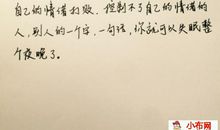 自己的情绪打败，控制不了自己的情绪的
人，别人的一个字，一句话，你就可以失眠整
个夜晚了。
小布网